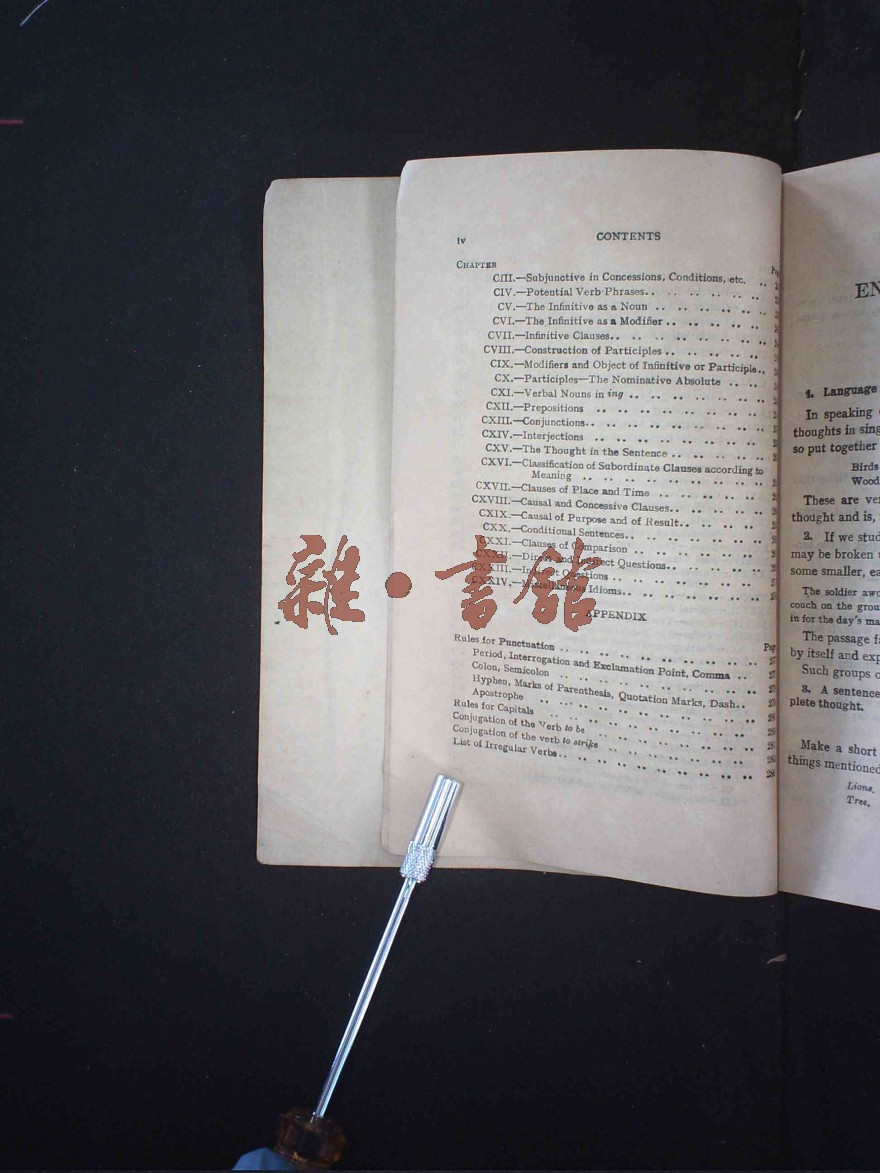 iv CONTENTS
CHAPTER
CIII.—Subjunctive in Concessions, Conditions, etc. ..
CIV.—Potential Verb-Phrases.. .. .. .. .. .. ..
CV.—The Infinitive as a Noun .. .. .. .. .. ..
CVI.—The Infinitive as a Modifier .. .. .. .. .. ..
CVII.—Infinitive Clauses.. .. .. .. .. .. .. ..
CVIII.—Construction of Participles .. .. .. .. .. ..
CIX.—Modifiers and Object of Infinitive or Participle..
CX.—Participles—The Nominative Absolute .. .. ..
CXI.—Verbal Nouns in ing .. .. .. .. .. .. ..
CXII.—Prepositions .. .. .. .. .. .. .. ..
CXIII.—Conjunctions.. .. .. .. .. .. .. ..
CXIV.—Interjections .. .. .. .. .. .. .. ..
CXV.—The Thought in the Sentence .. .. .. .. ..
CXVI.—Classification of Subordinate Clauses according to
Meaning .. .. .. .. .. .. .. ..
CXVII.—Clauses of Place and Time .. .. .. .. ..
CXVIII.—Causal and Concessive Clauses.. .. .. .. ..
CXIX.—Causal of Purpose and of Result.. .. .. .. ..
CXX.—Conditional Sentences.. .. .. .. .. .. ..
CXXI.—Clauses of Comparison .. .. .. .. .. ..
CXXII.—Direct and Indirect Questions.. .. .. .. ..
CXXIII.—Indirect Questions .. .. .. .. .. .. ..
CXXIV.—Miscellaneous Idioms.. .. .. .. .. .. ..
雜·書館
APPENDIX
Rules for Punctuation .. .. .. .. .. .. .. .. ..
Period, Interrogation and Exclamation Point, Comma ..
Colon, Semicolon .. .. .. .. .. .. .. ..
Hyphen, Marks of Parenthesis, Quotation Marks, Dash..
Apostrophe .. .. .. .. .. .. .. .. ..
Rules for Capitals .. .. .. .. .. .. .. ..
Conjugation of the Verb to be .. .. .. .. .. ..
Conjugation of the verb to strike .. .. .. .. .. ..
List of Irregular Verbs.. .. .. .. .. .. .. ..
1. Language
In speaking
thoughts in
so put together
Birds
Wood
These are
thought and is,
2. If we
may be broken
some smaller,
The soldier
couch on the
in for the day's
The passage
by itself and
Such groups
3. A sentence
plete thought.
Make a short
things mentioned
Lions,
Tree,